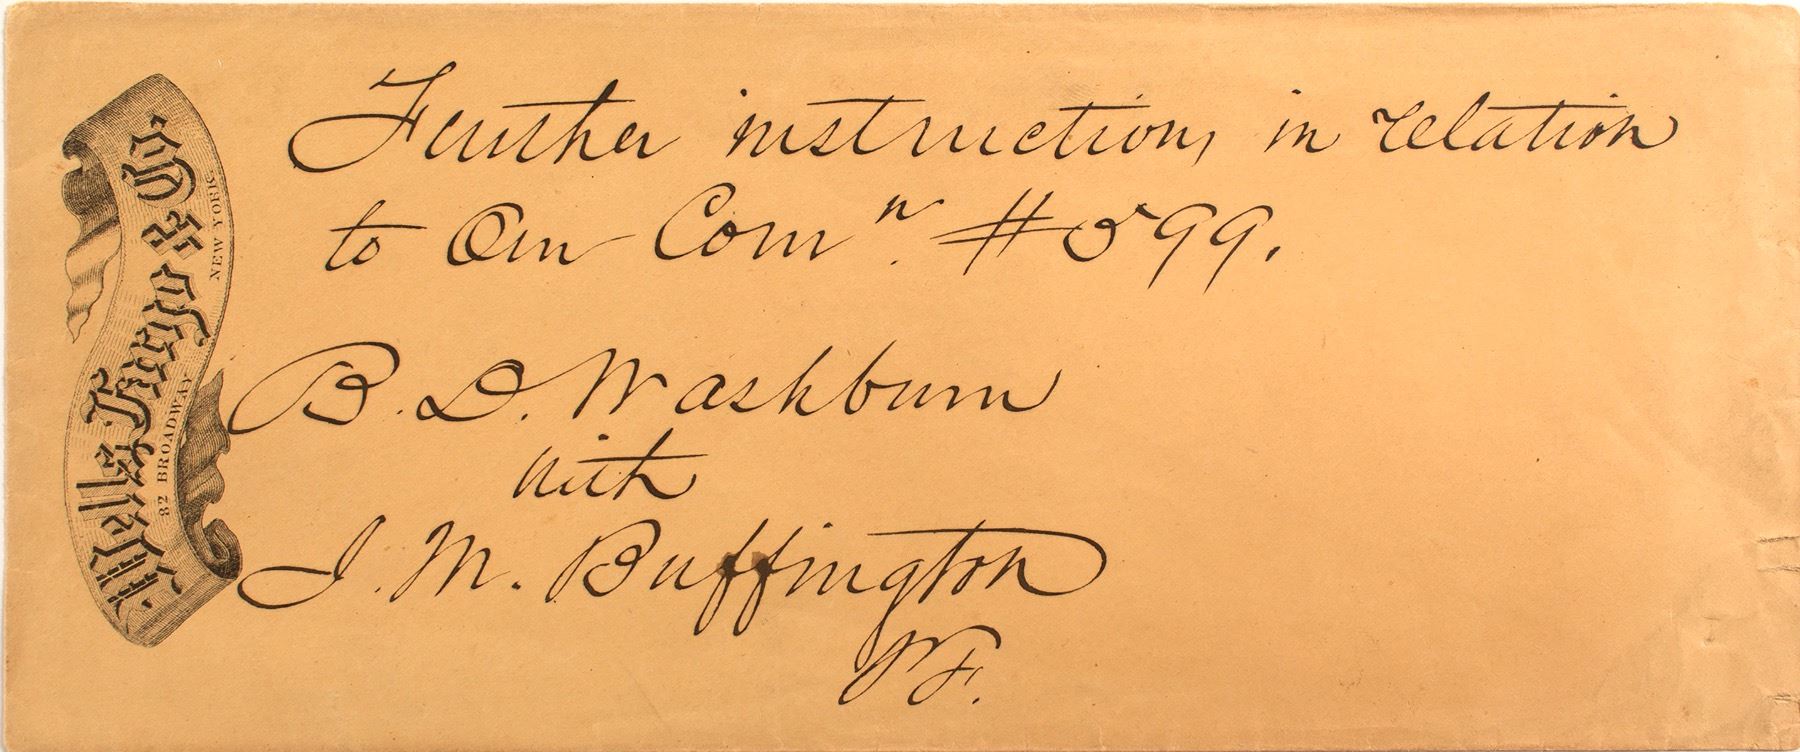 Wells Fargo & Co
NEW YORK
82 BROADWAY
Further instructions in relation
to Our Comn. #599.
B. D. Washburn
with
J. M. Buffington
WF.